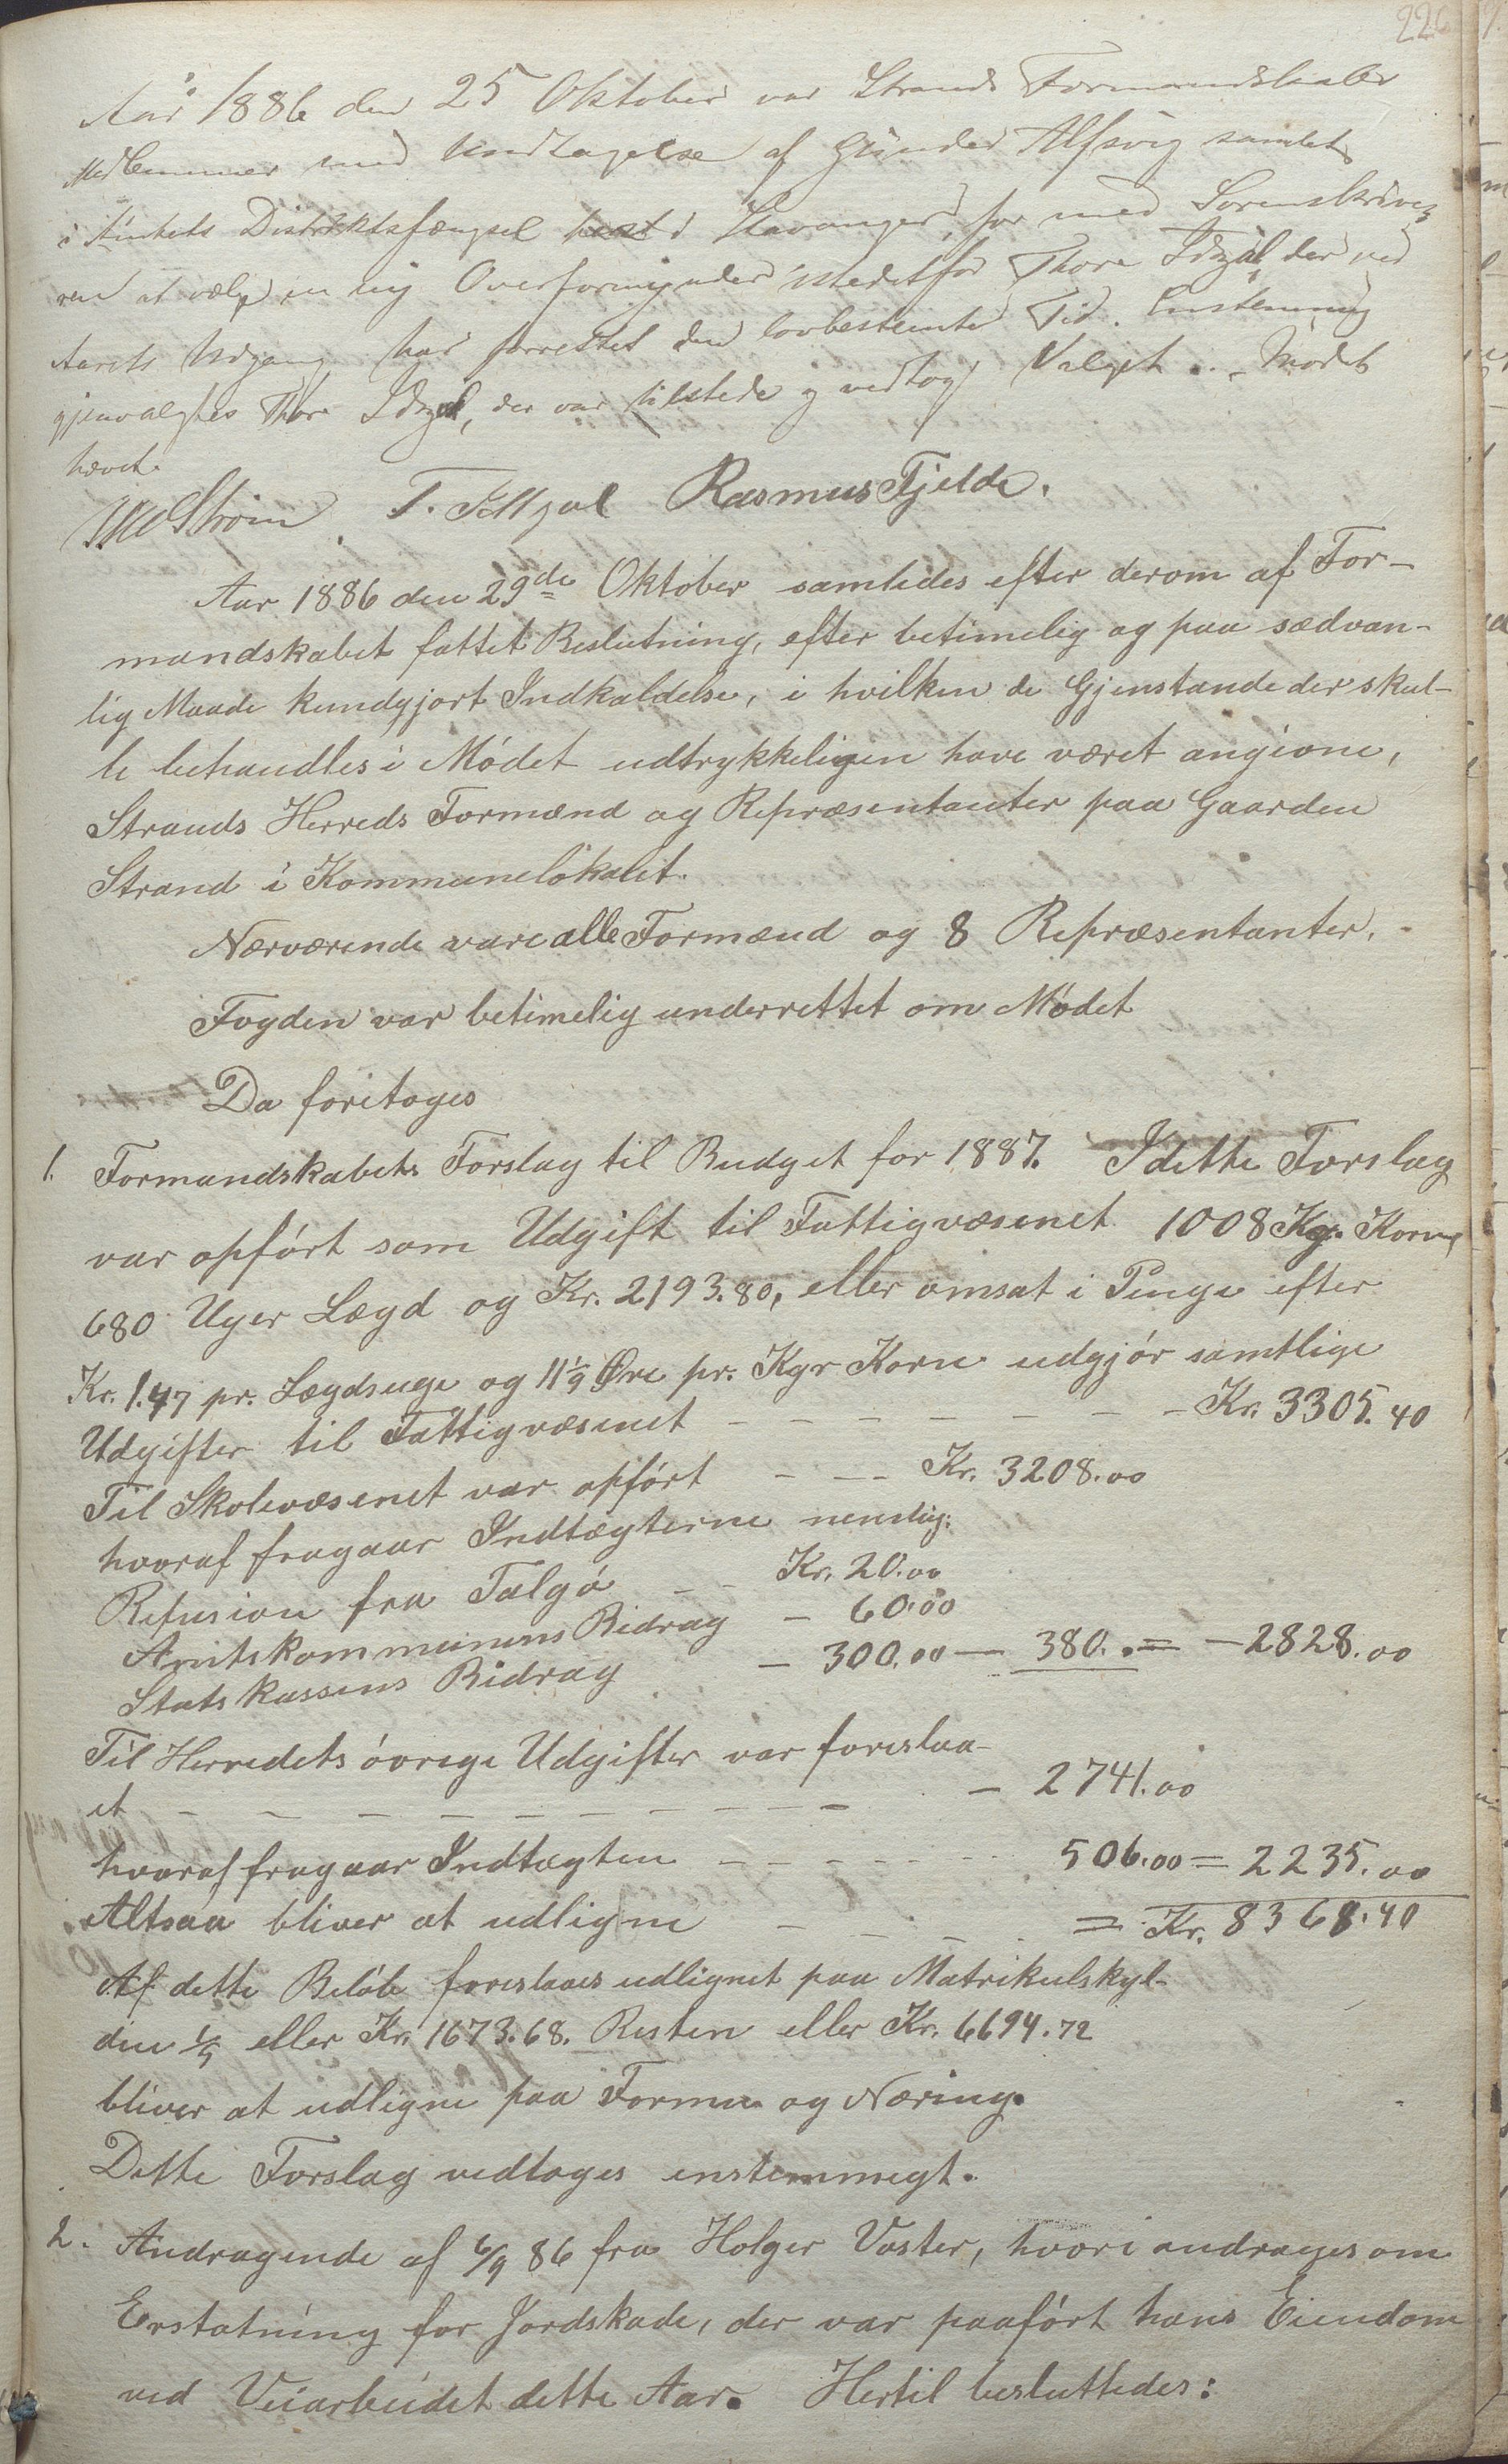 226
Aar 1886 den 25 Oktober var Strands Formandskabs
Medlemmer med Undtagelse af Gunder Alfsvig samlet
i Amtets Distriktsfængsel i Stavanger, for med Sorenskrive-
ren at vælge en ny Overformynder istedetfor Thore Idzøl, der ved
Aarets Udgang har forrettet den lovbestemte Tid. Enstemmig
gjenvalgtes Thore Idzøl, der var tilstede og vedtog Valget. – Mødet
hævet.
Strøm T. Idtzøl Rasmus Fjelde.
Aar 1886 den 29de Oktober samledes efter derom af For-
mandskabet fattet Beslutning, efter betimelig og paa sædvan-
lig Maade kundgjort Indkaldelse, i hvilken de Gjenstande der skul-
le behandles i Mødet udtrykkeligen have været angivne,
Strands Herreds Formænd og Repræsentanter paa Gaarden
Strand i Kommunelokalet.
Nærværende vare alle Formænd og 8 Repræsentanter.
Fogden var betimelig underrettet om Mødet
Da foretoges
1. Formandskabets Forslag til Budget for 1887. I dette Forslag
var opført som Udgift til Fattigvæsenet 1008 Kg. Korn,
680 Uger Lægd og Kr. 2193.80, eller omsat i Penge efter
Kr. 1.47 pr. Lægdsuge og 11 1/9 Øre pr. Kgr Korn udgjør samtlige
Udgifter til Fattigvæsenet – – – – – – – Kr. 3305.40
Til Skolevæsenet var opført – – – Kr. 3208.00
hvoraf fragaar Indtægterne nemlig:
Refusion fra Talgø – – Kr. 20.00
Amtskommunens Bidrag – 60.00
Statskassens Bidrag – 300.00 – 380. = – 2828.00
Til Herredets øvrige Udgifter var foreslaa-
et – – – – – – – – – – 2741.00
hvoraf fragaar Indtægten – – – – – – 506.00 = 2235.00
Altsaa bliver at udligne – – – = Kr. 8368.40
Af dette Beløb foreslaaes udlignet paa Matrikulskyl-
den 1/5 eller Kr. 1673.68. Resten eller Kr. 6694.72
bliver at udligne paa Formue og Næring.
Dette Forslag vedtoges enstemmigt.
2. Andragende af 6/9 86 fra Holger Vaster, hvori andrages om
Erstatning for Jordskade, der var paaført hans Eiendom
ved Veiarbeidet dette Aar. Hertil besluttedes: